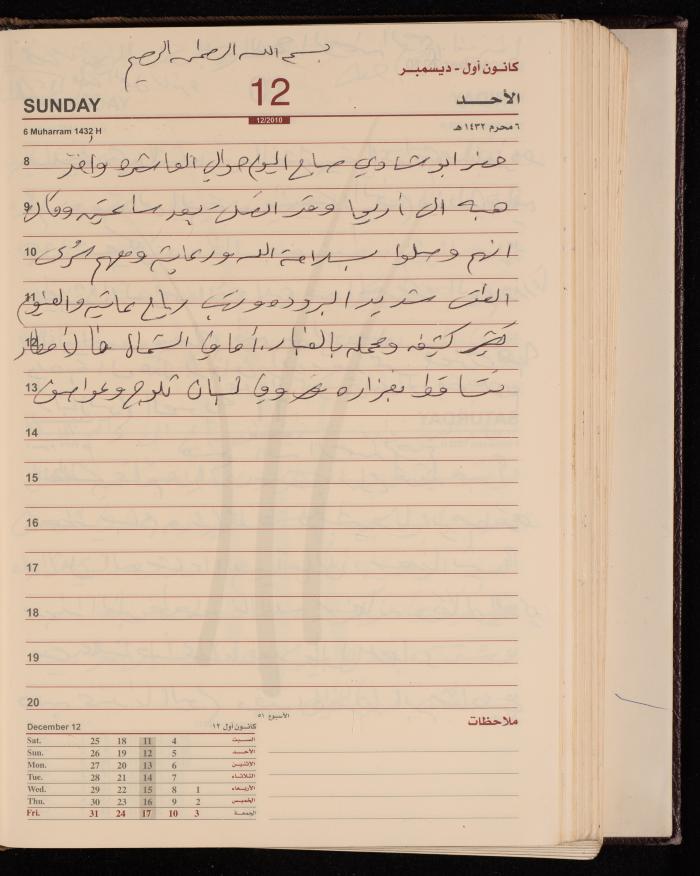 بسم الله الرحمن الرحيم
كانون أول - ديسمبر
SUNDAY 12 الأحد
12/2010
6 Muharram 1432 H ٦ محرم ١٤٣٢ هـ
8 حضر ابو شادي صباح اليوم حوالي العاشره واخذ
9 هبه الى أريحا وقد اتصلت بعد ساعتين وقال
10 انهم وصلوا بسلامة الله ورعايته ومعهم
11 الطقس شديد البروده وتهب رياح عاتيه والغيوم
12 كثيفه ومحمله بالغبار، أما في الشمال فالأمطار
13 تتساقط بغزاره وفي لبنان ثلوج وعواصف
14
15
16
17
18
19
20
الأسبوع ٥١
December 12 كانون أول ١٢
ملاحظات
Sat. 25 18 11 4 السبت
Sun. 26 19 12 5 الأحد
Mon. 27 20 13 6 الاثنين
Tue. 28 21 14 7 الثلاثاء
Wed. 29 22 15 8 1 الأربعاء
Thu. 30 23 16 9 2 الخميس
Fri. 31 24 17 10 3 الجمعة